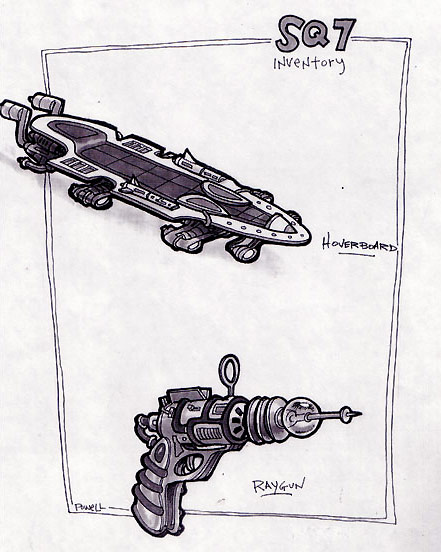 SQ7
INVENTORY
HOVERBOARD
RAYGUN
POWELL